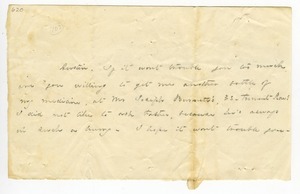 Austin. If it won't trouble you too much
are you willing to get me another bottle of
my medicine, at Mr Joseph Burnett's, 33. Tremont Row?
I did not like to ask Father because he's always
in such a hurry. I hope it won't trouble you -